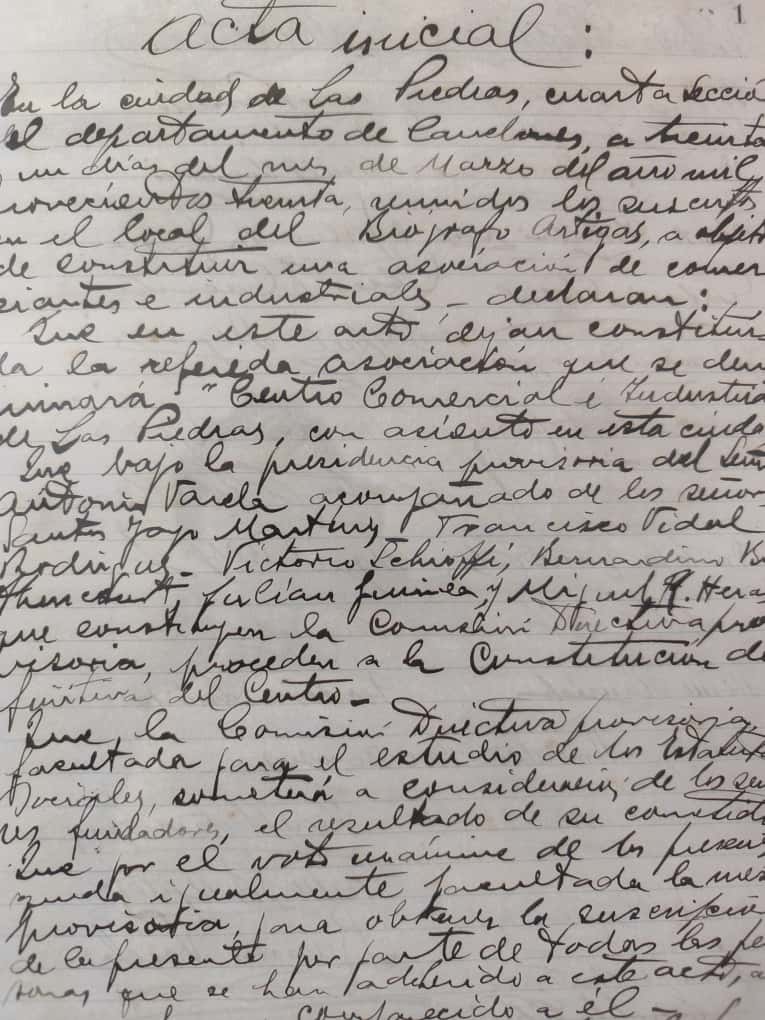 1
Acta inicial:
En la ciudad de Las Piedras, cuarta Secció
el departamento de Canelones, a treinta
un días del mes de Marzo del año mil
novecientos treinta, reunidos los suscritos
en el local del Biógrafo Artigas, a objeto
de constituir una asociación de comer
ciantes e industriales - declaran:
Que en este acto dejan constitui
da la referida asociación que se den
minará "Centro Comercial é Industria
de Las Piedras, con asiento en esta ciuda
Que bajo la presidencia provisoria del Señ
Antonio Varela acompañado de los señor
Santos Martinez Francisco Vidal
Rodriguez - Victorio Schioffi, Bernardino
Julián Guinea, y Miguel A. Heras
que constituyen la Comisión Directiva pro
visoria, proceden a la Constitución de
finitiva del Centro -
Que, la Comisión Directiva provisoria,
facultada para el estudio de los Estatuto
Sociales, someterá a consideración de los seño
res fundadores, el resultado de su cometido
Que por el voto unánime de los present
queda igualmente facultada la mes
provisoria, para obtener la suscripción
de la presente por parte de todas las pe
sonas que se han adherido a este acto, a
comparecido a él -